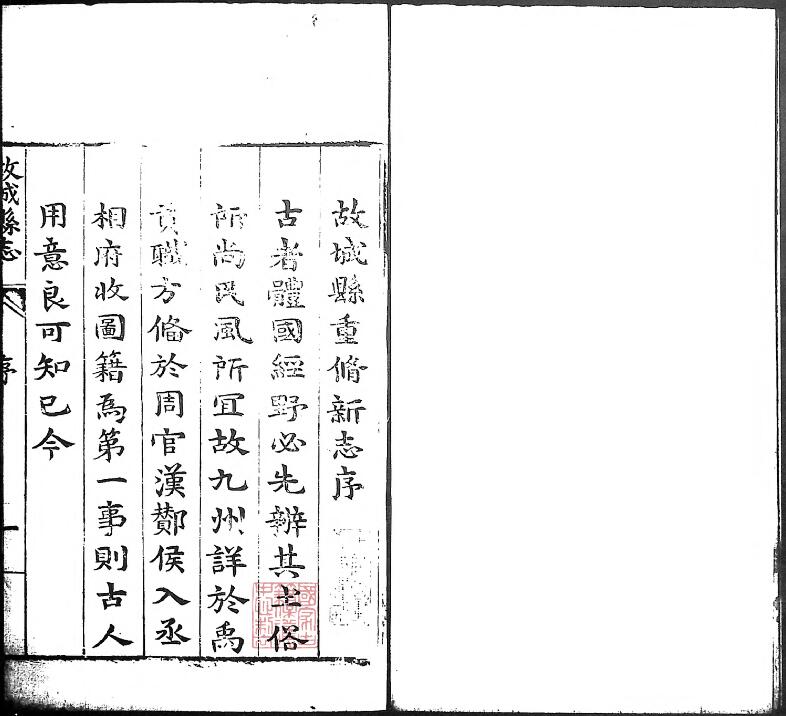 故城縣重脩新志序
古者體國經野必先辨其土俗
所尚民風所宜故九州詳於禹
貢職方備於周官漢酇侯入丞
相府收圖籍爲第一事則古人
用意良可知已今
故城縣志
序
一